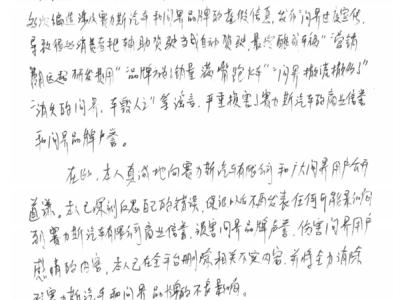 多次编造涉及赛力斯汽车和问界品牌的虚假信息，发布"问界过度宣传，
导致很多消费者把辅助驾驶当成自动驾驶，最终酿成车祸""营销
费用远超研发费用""品牌不够销量 满嘴跑火车""问界撒谎撒惯了"
"消失的问界，车毁人亡"等谣言，严重损害了赛力斯汽车的商业信誉
和问界品牌声誉。
在此，本人真诚地向赛力斯汽车有限公司和广大问界用户公开
道歉。本人已深刻反思自己的错误，保证以后不再发表任何可能
到赛力斯汽车有限公司商业信誉、损害问界品牌声誉、伤害问界用户
感情的内容，本人已在全平台删除相关不实内容，并将全力消除
对赛力斯汽车和问界品牌的不良影响。